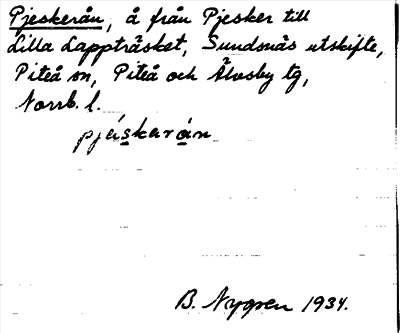 Pjeskerån, å från Pjesker till
Lilla Lappträsket, Sundsnäs utskifte,
Piteå sn, Piteå och Älvsby tg,
Norrb. l.
pjäskarån
B. Nygren 1934.